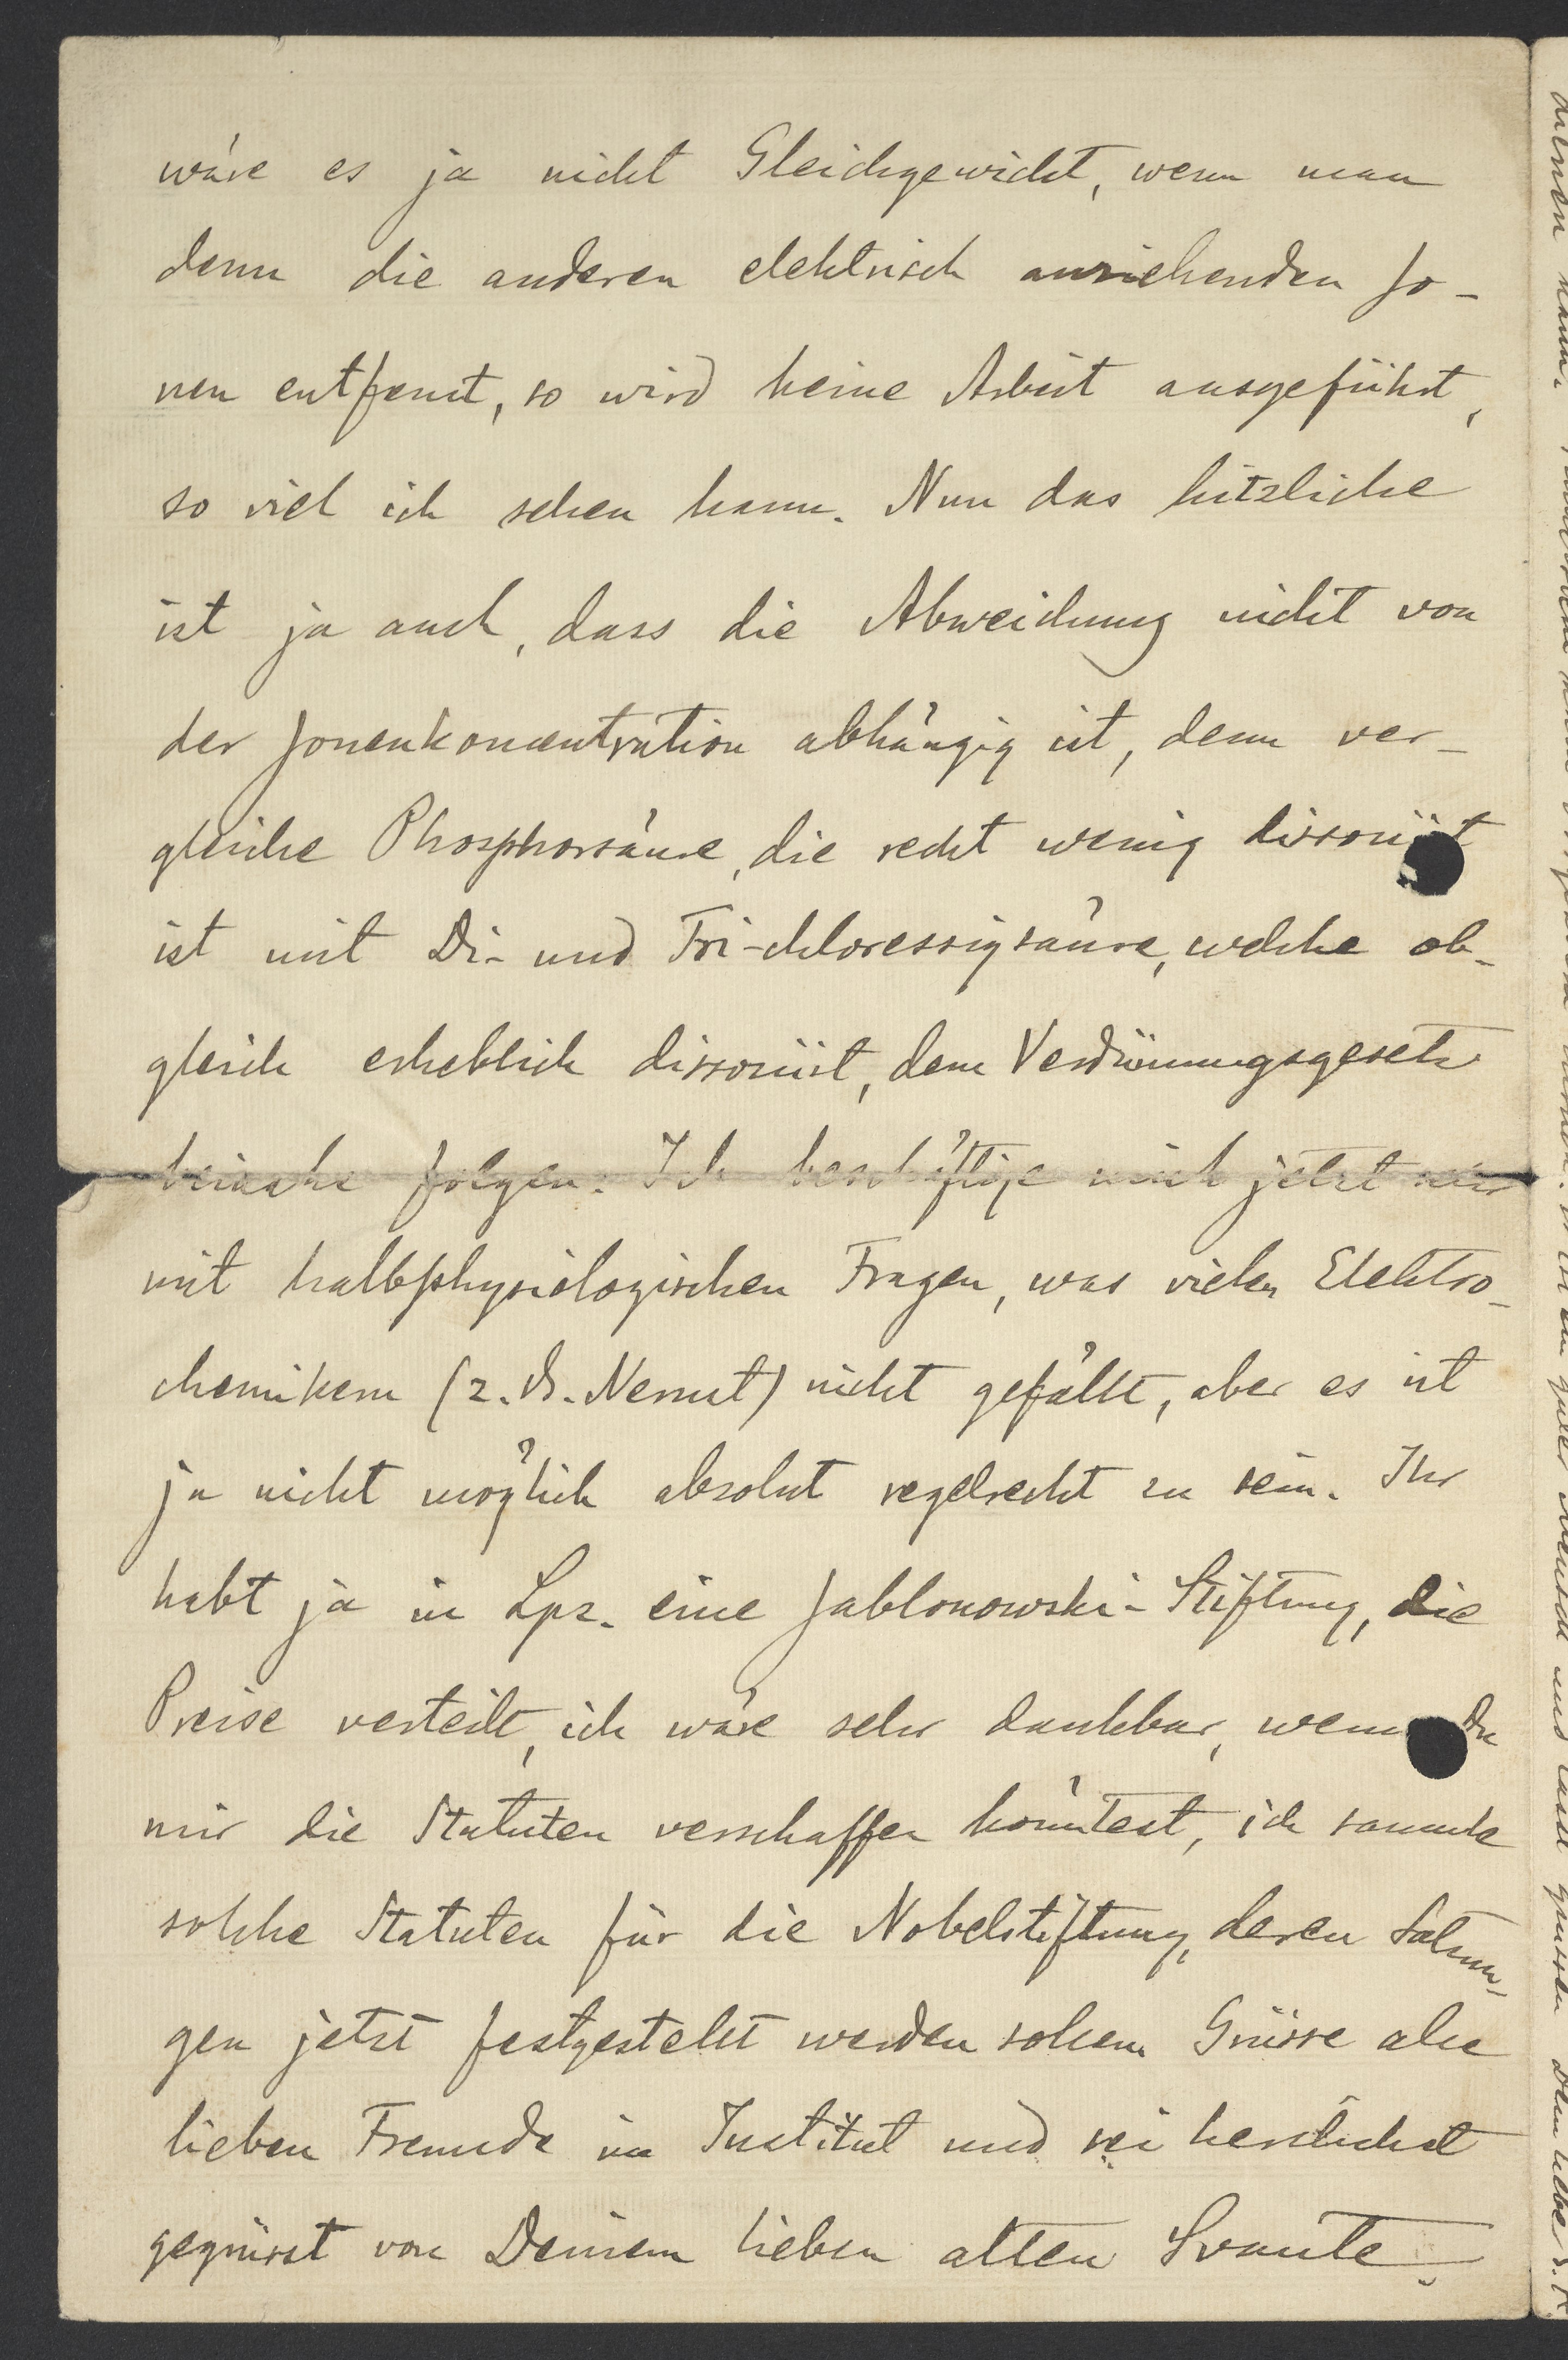 wäre es ja nicht Gleichgewicht, wenn man
denn die anderen elektrisch anziehenden Jo-
nen entfernt, so wird keine Arbeit ausgeführt,
so viel ich sehen kann. Nun das kitzliche
ist ja auch, dass die Abweichung nicht von
der Jonenkoncentration abhängig ist, denn ver-
gleiche Phosphorsäure, die recht wenig dissociirt
ist mit Di- und Tri-chloressigsäure, welche ob-
gleich erheblich dissociirt, dem Verdünnungsgesetz
beinahe folgen. Ich beschäftige mich jetzt nur
mit halbphysiologischen Fragen, was vielen Elektro-
chemikern (z. B. Nernst) nicht gefällt, aber es ist
ja nicht möglich absolut regelrecht zu sein. Ihr
habt ja in Lpz. eine Jablonowski-Stiftung, die
Preise verteilt, ich wäre sehr dankbar, wenn Du
mir die Statuten verschaffen könntest, ich sammle
solche Statuten für die Nobelstiftung, deren Satzun-
gen jetzt festgestellt werden sollen. Grüsse alle
lieben Freunde im Institut und sei herzlichst
gegrüsst von Deinem lieben alten Svante